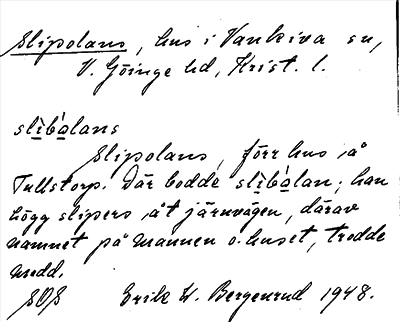 Slipolans, hus i Vankiva sn,
V. Göinge hd, Krist. l.
slìbálans
Slipolans, förr hus å
Tullstorp. Där bodde slìbálan; han
högg slipers åt järnvägen, därav
namnet på mannen o. huset, trodde
medd.
SOS Erik W. Bergenrud 1948.